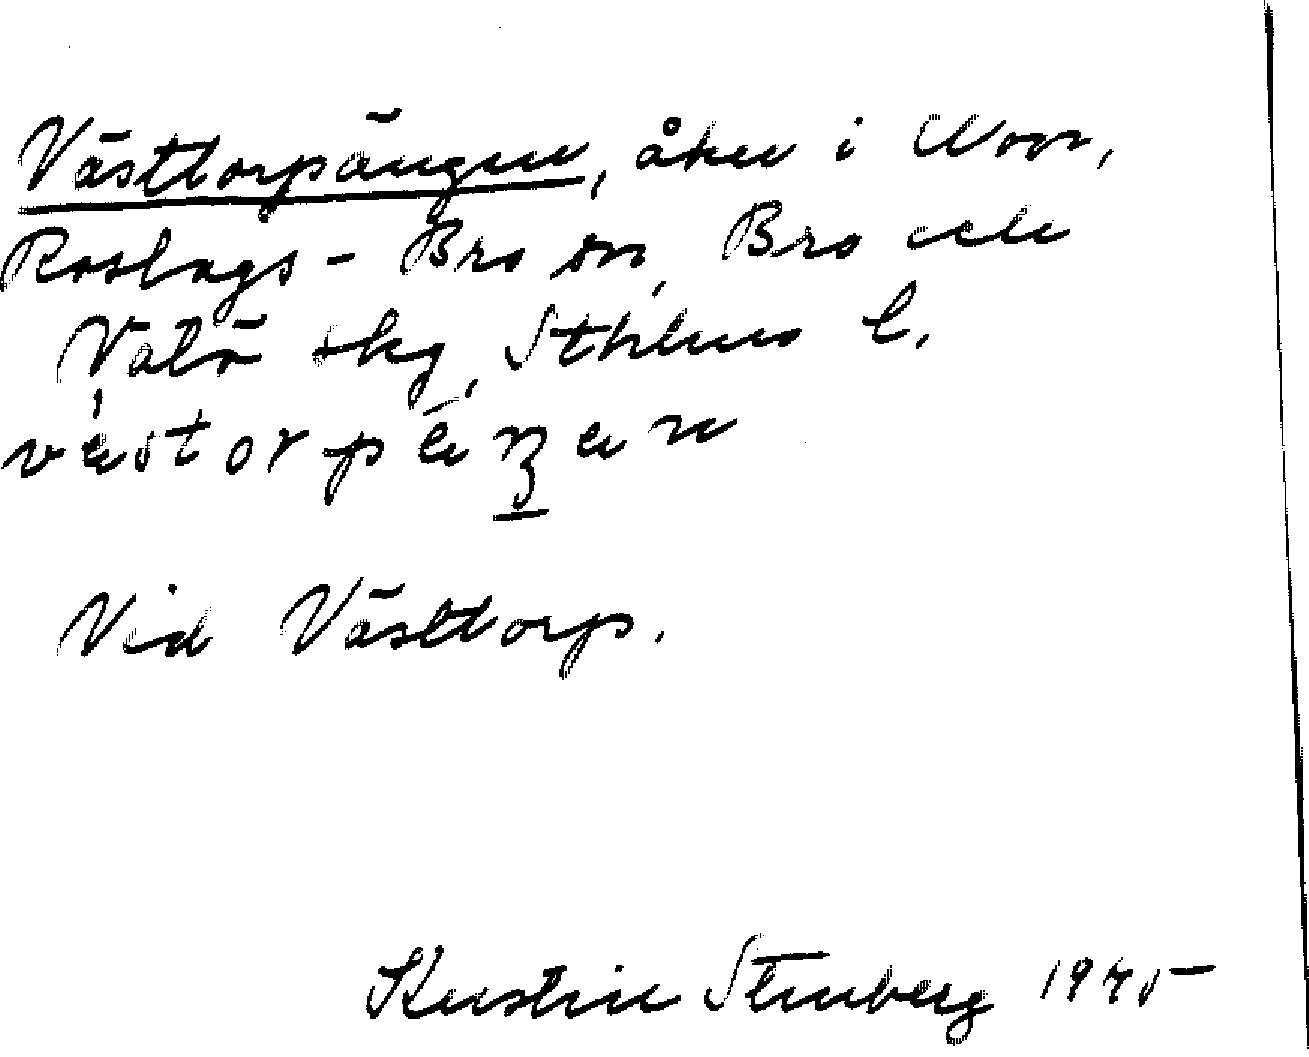 Västtorpängen, åker i
Roslags-Bro sn, Bro och
Vätö skg, Sthlms l.
Vid Västtorp.
Kerstin Stenberg 1945